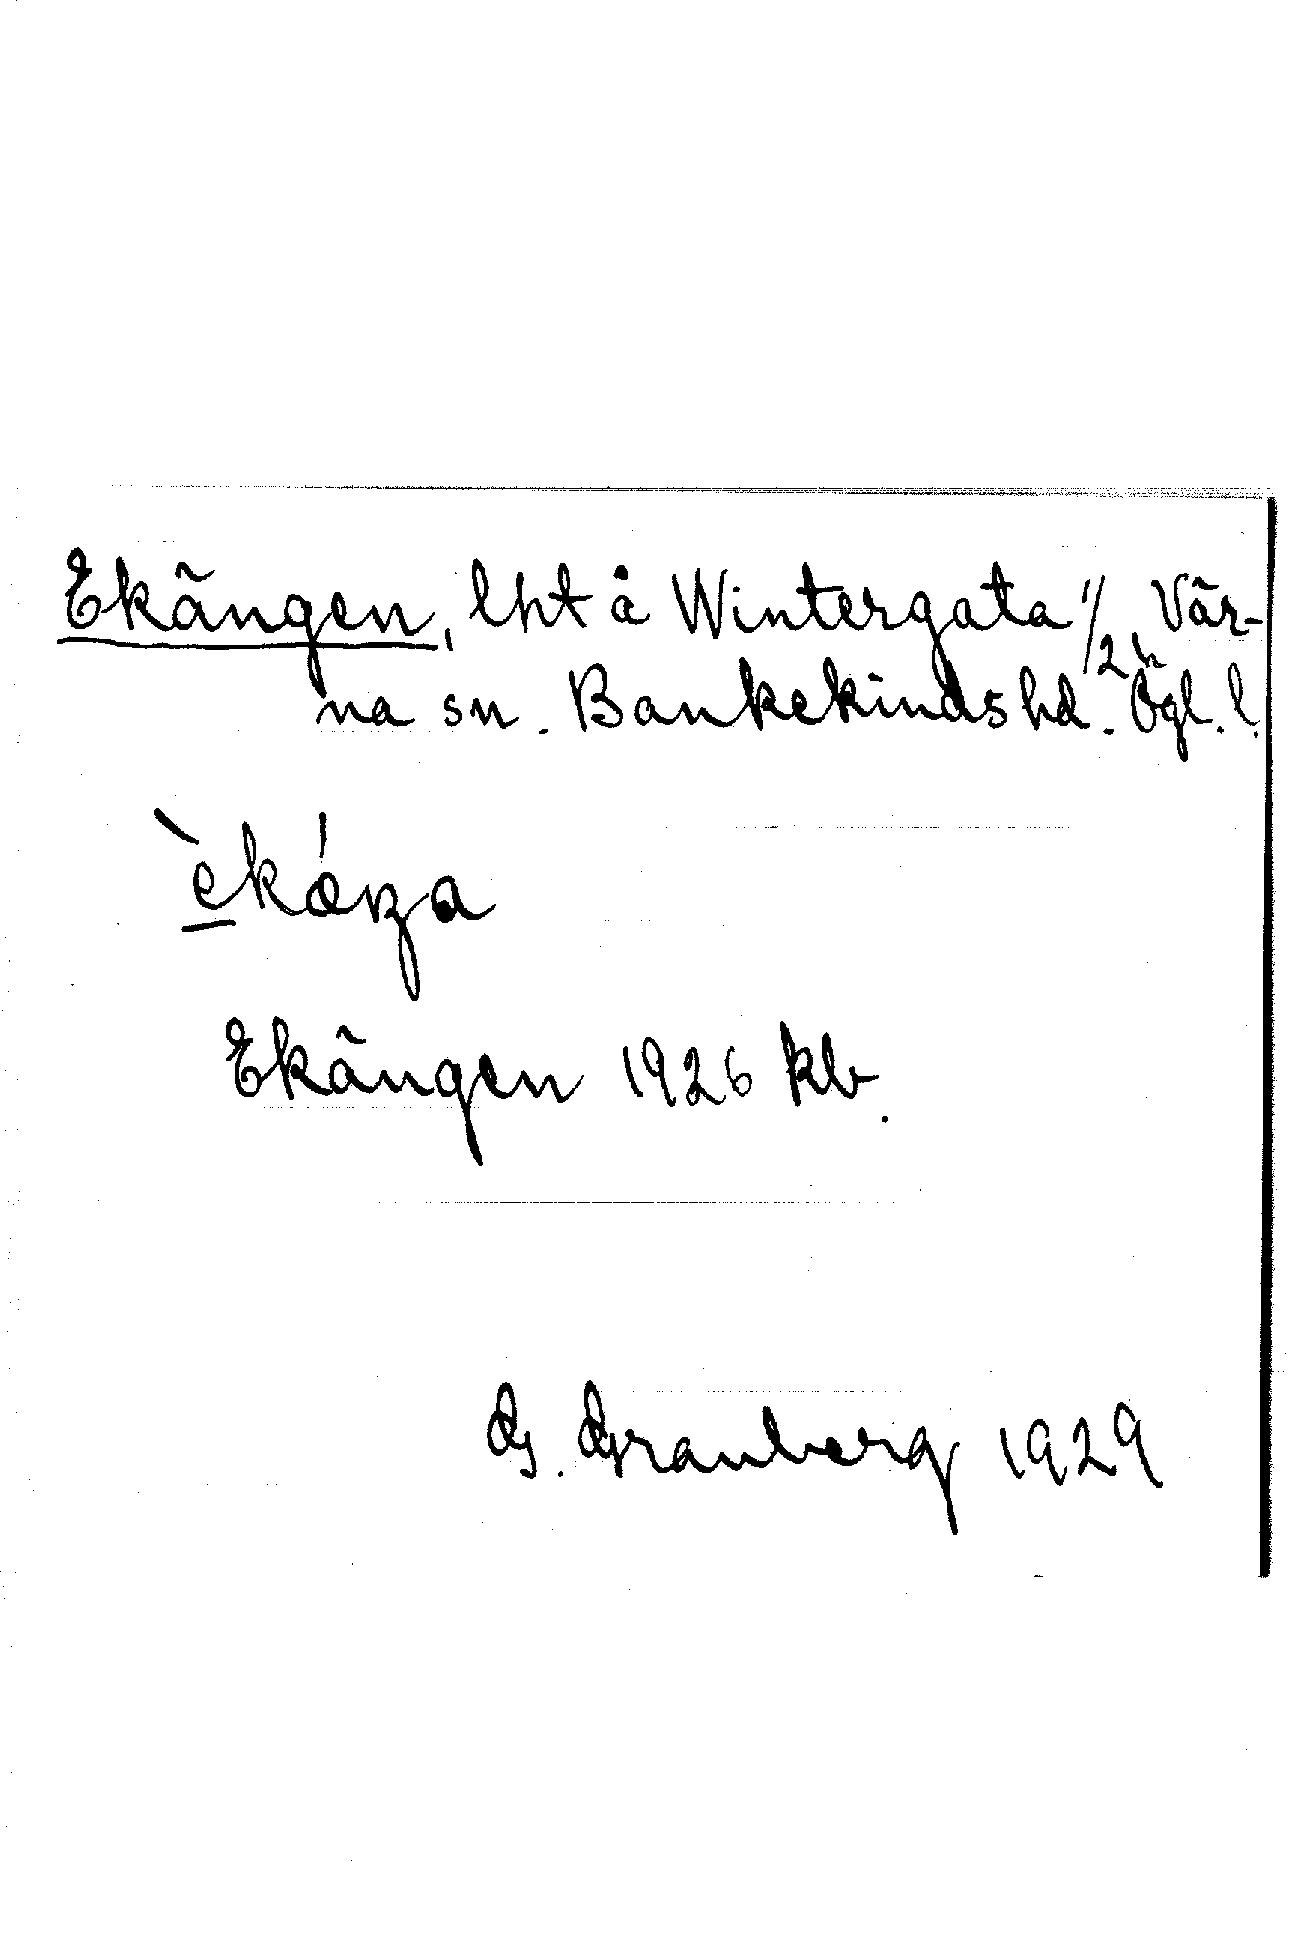 Ekängen, lht å Wintergata 1/2 h Vär-
na sn. Bankekinds hd. Ögl. l.
Ekängen 1926 kb.
G. Granberg 1929